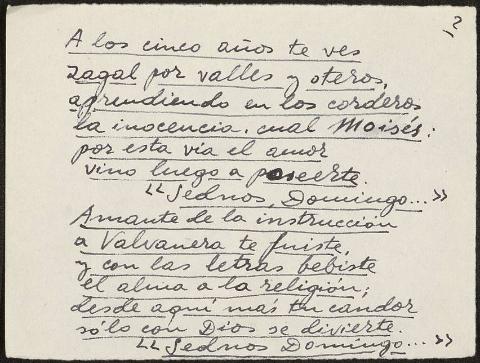 2
A los cinco años te ves
zagal por valles y oteros,
aprendiendo en los corderos
la inocencia, cual Moisés:
por esta vía el amor
vino luego a poseerte.
"Sednos, Domingo..."
Amante de la instrucción
a Valvanera te fuiste,
y con las letras bebiste
el alma a la religión;
desde aquí más tu candor
sólo con Dios se divierte.
"Sednos Domingo..."